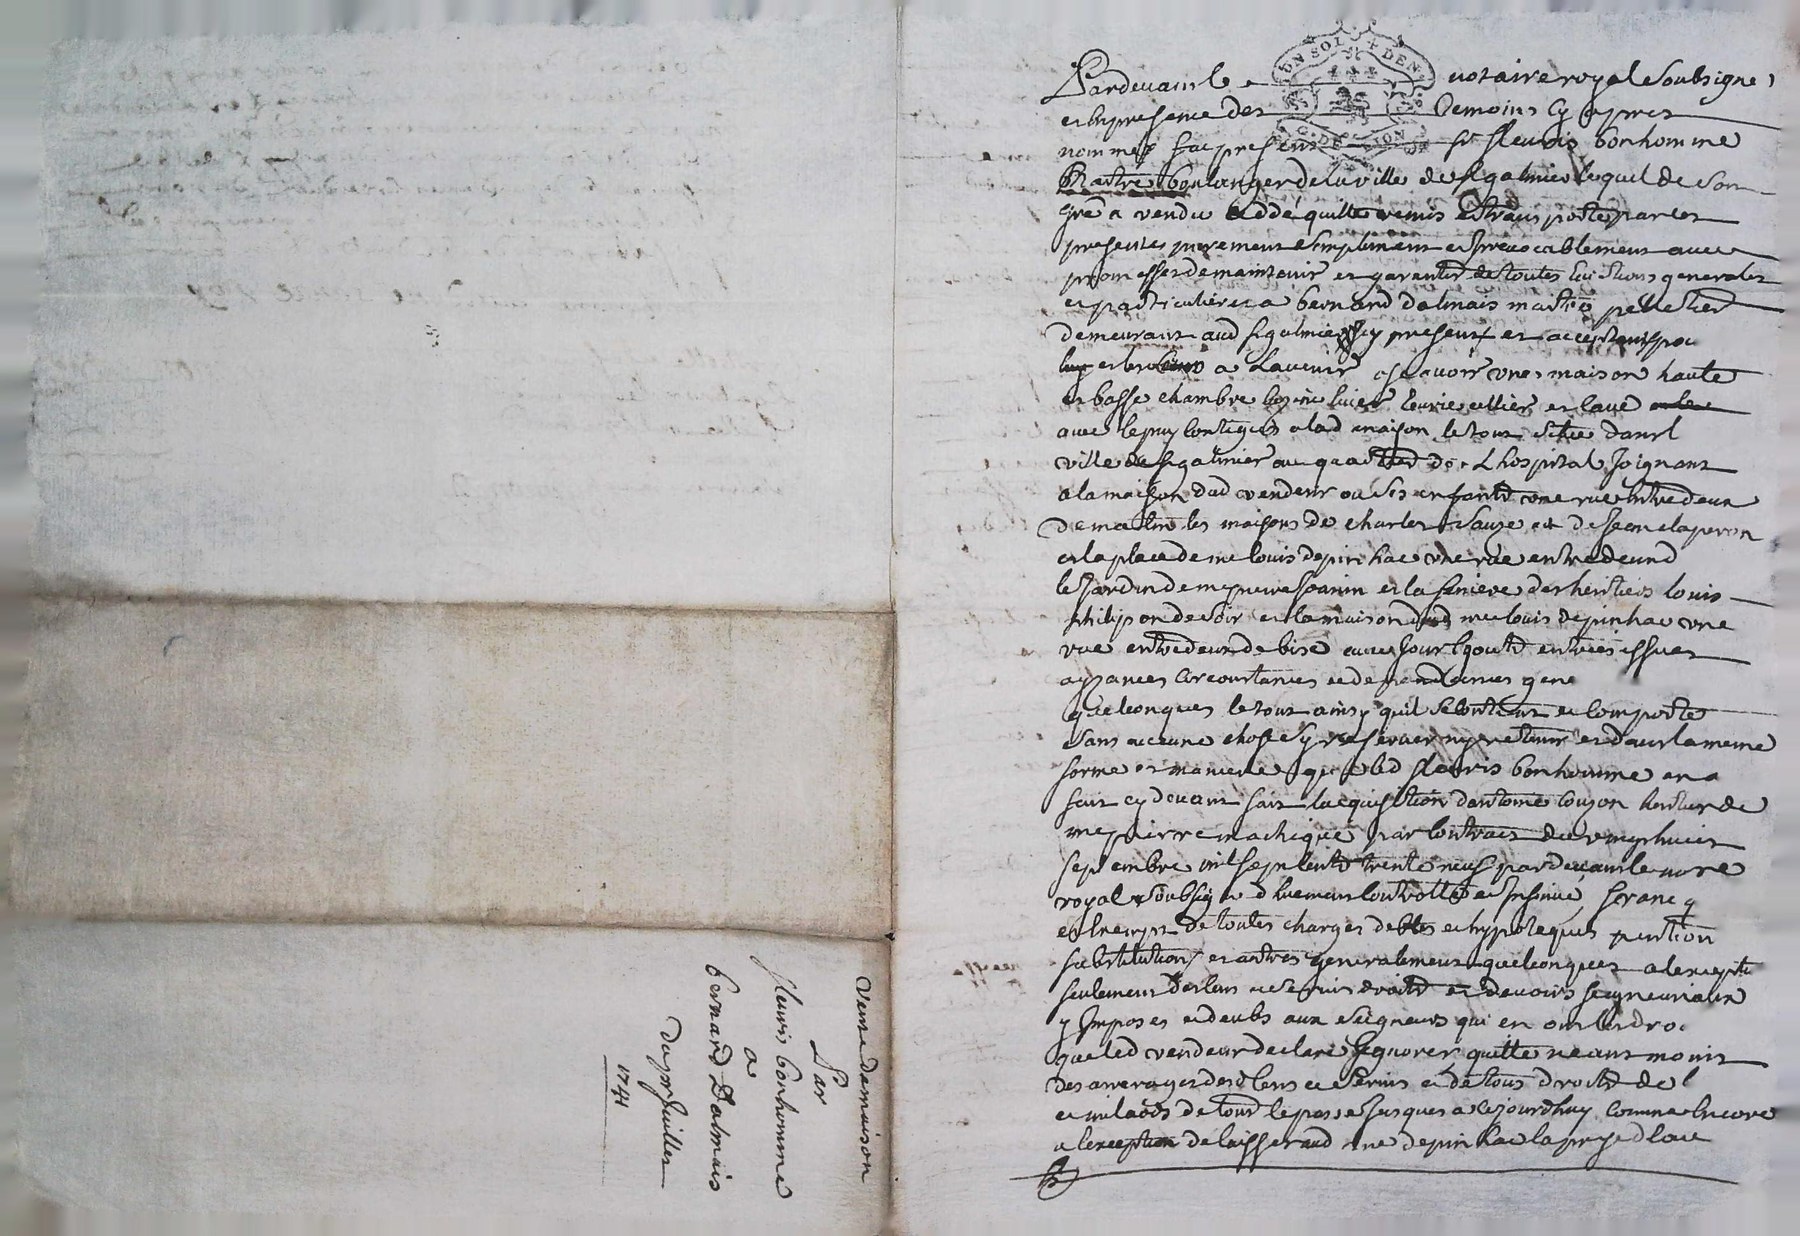 Vente de maison
Par
fleuris bonhomme
a
bernard Dalmais
Du juillet
1741
UN SOL DEN
G. DE LION
Pardevant le notaire royal Soubsigne
et en presence des temoins cy apres
nommes fut present Sr fleuris bonhomme
Maitre boulanger de la ville de St galmier lequel de son
gré a vendu ceddé quitté remis et transporté par ces
presentes purement simplement et irrevocablement avec
promesses de maintenir et garentir de toutes evictions generales
et particulieres a bernard dalmais maitre pelletier
demeurant aud St galmier cy present et acceptant pour
luy et les siens a lavenir asavoir une maison haute
et basse chambre cuvier ecurie cellier et cave
avec le puy contigus a lad maison le tout situé dans l
ville de St galmier au quartier de Lhospital Joignant
a la maison dud vendeur ou ses enfants une rue entredeux
de matin les maisons de charles Sauze et de Jean claperon
et la place de me louis depinhac une rue entredeux d
le Jardin de me pierre Jeanin et la feniere des heritiers louis
philipon de soir et la maison dud me louis depinhac une
rue entredeux de bize avec Jour Egouts entrées issues
aysances circonstances et dependances gene
quelconques le tout ainsy quil se contient et comporte
sans aucune chose sy reserver ny retenir et dans la meme
forme et maniere que led fleuris bonhomme en a
fait cy devant fait lacquisition dantoine couzon heritier de
me pierre machique par contract du vingthuict
septembre mil sept cents trente neuf pardevant le nore
royal soubsigné dhuement controllé et Insinué, franc q
et Exempt de toutes charges debtes et hypoteques pention
substitutions et autres generalement quelconques a lexceptio
seulement des cens et servis droits et devoirs seigneuriaux
y Imposés et deubs aux seigneurs qui en ont le dro.
que led vendeur declare Ignorer quitte neantmoins
des arrerages desd cens et servis et de tous droits de l
et milaods de tout le passé Jusques a cejourdhuy comme Encore
a lexception de laisser aud me depinhac la prise deau